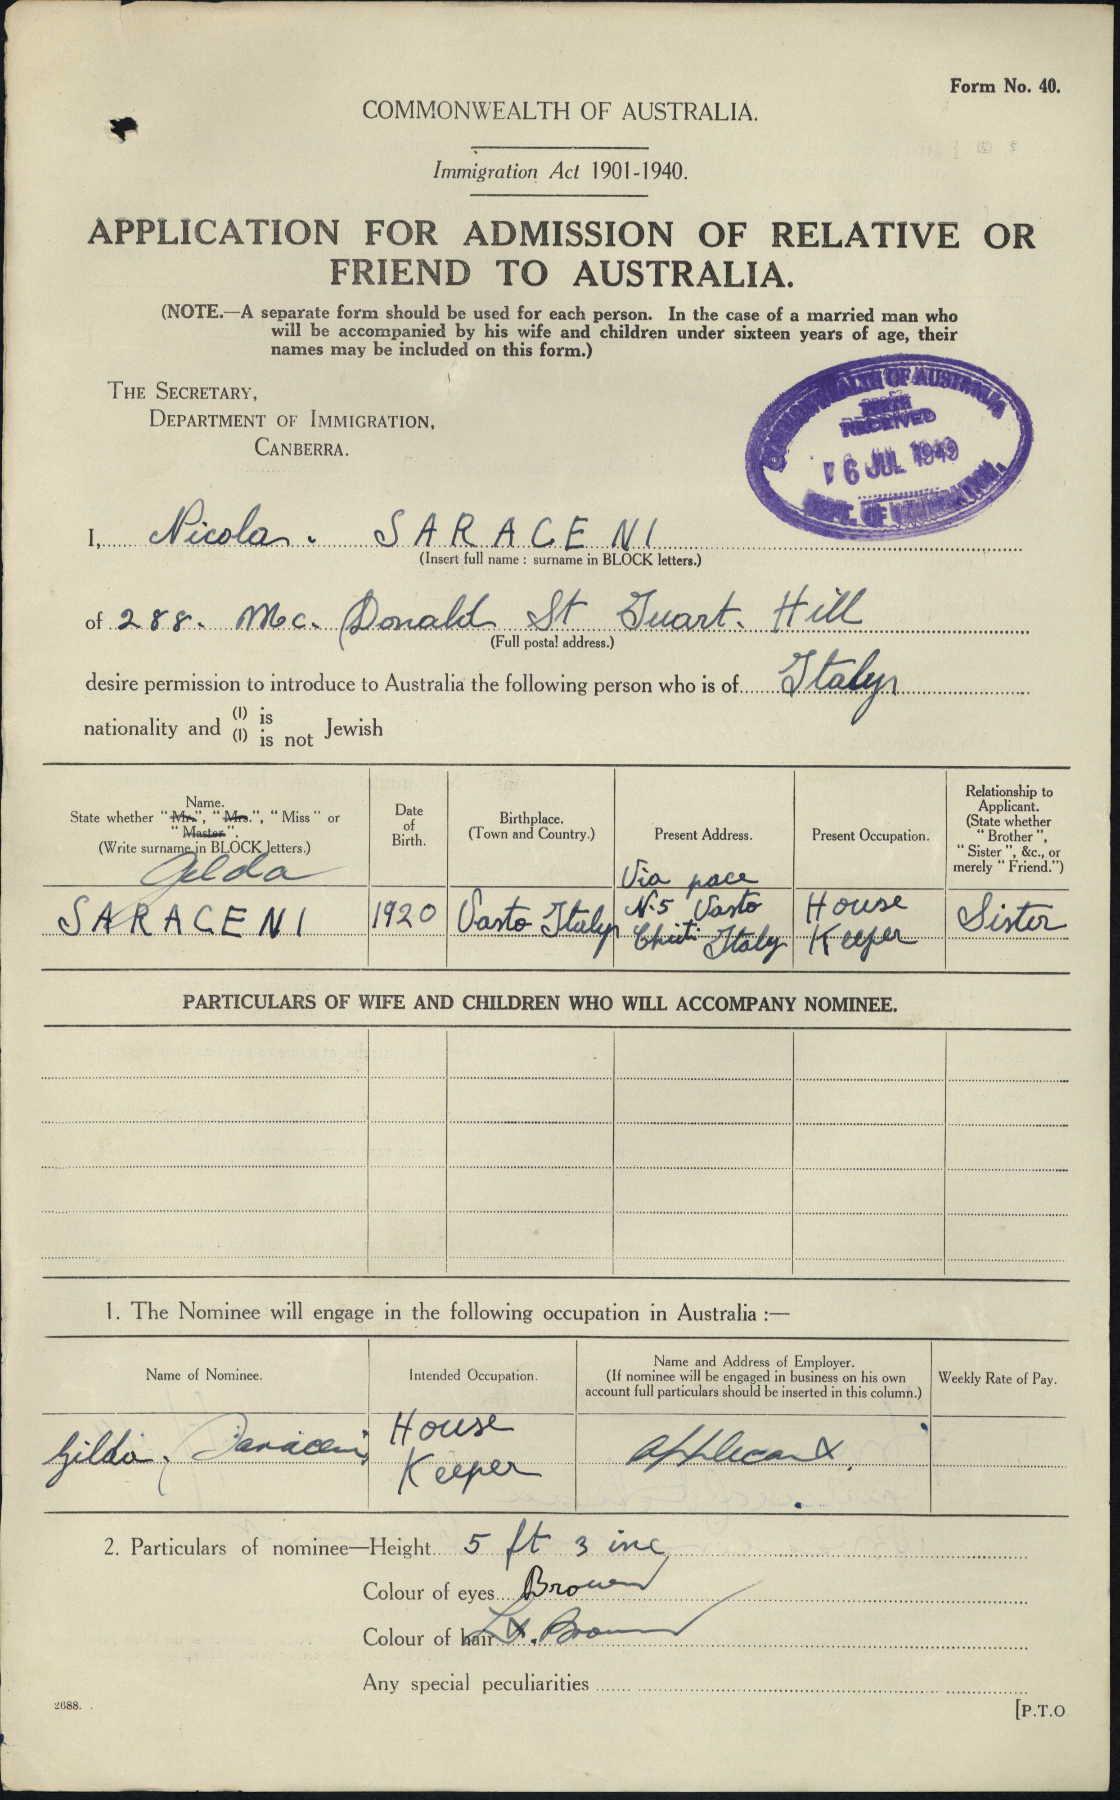 Form No. 40.
COMMONWEALTH OF AUSTRALIA.
Immigration Act 1901-1940.
APPLICATION FOR ADMISSION OF RELATIVE OR
FRIEND TO AUSTRALIA.
(NOTE.—A separate form should be used for each person. In the case of a married man who
will be accompanied by his wife and children under sixteen years of age, their
names may be included on this form.)
THE SECRETARY,
DEPARTMENT OF IMMIGRATION,
CANBERRA.
COMMONWEALTH OF AUSTRALIA
RECEIVED
6 JUL 1949
DEPT. OF IMMIGRATION.
I, Nicola. SARACENI
(Insert full name : surname in BLOCK letters.)
of 288. Mc. Donald St Tuart. Hill
(Full postal address.)
desire permission to introduce to Australia the following person who is of Italyn
nationality and (1) is
(1) is not Jewish
Name.
State whether "Mr.", "Mrs.", "Miss" or
"Master".
(Write surname in BLOCK letters.)
Date
of
Birth.
Birthplace.
(Town and Country.)
Present Address.
Present Occupation.
Relationship to
Applicant.
(State whether
"Brother",
"Sister", &c., or
merely "Friend.")
Gilda
SARACENI
1920
Vasto Italyn
Via pace
N.5 Vasto
Chieti Italy
House
Keeper
Sister
PARTICULARS OF WIFE AND CHILDREN WHO WILL ACCOMPANY NOMINEE.
1. The Nominee will engage in the following occupation in Australia :—
Name of Nominee.
Intended Occupation.
Name and Address of Employer.
(If nominee will be engaged in business on his own
account full particulars should be inserted in this column.)
Weekly Rate of Pay.
Gilda. Saraceni
House
Keeper
Applicant.
2. Particulars of nominee—Height 5 ft 3 inc
Colour of eyes Brown
Colour of hair Lt. Brown
Any special peculiarities
2688.
[P.T.O